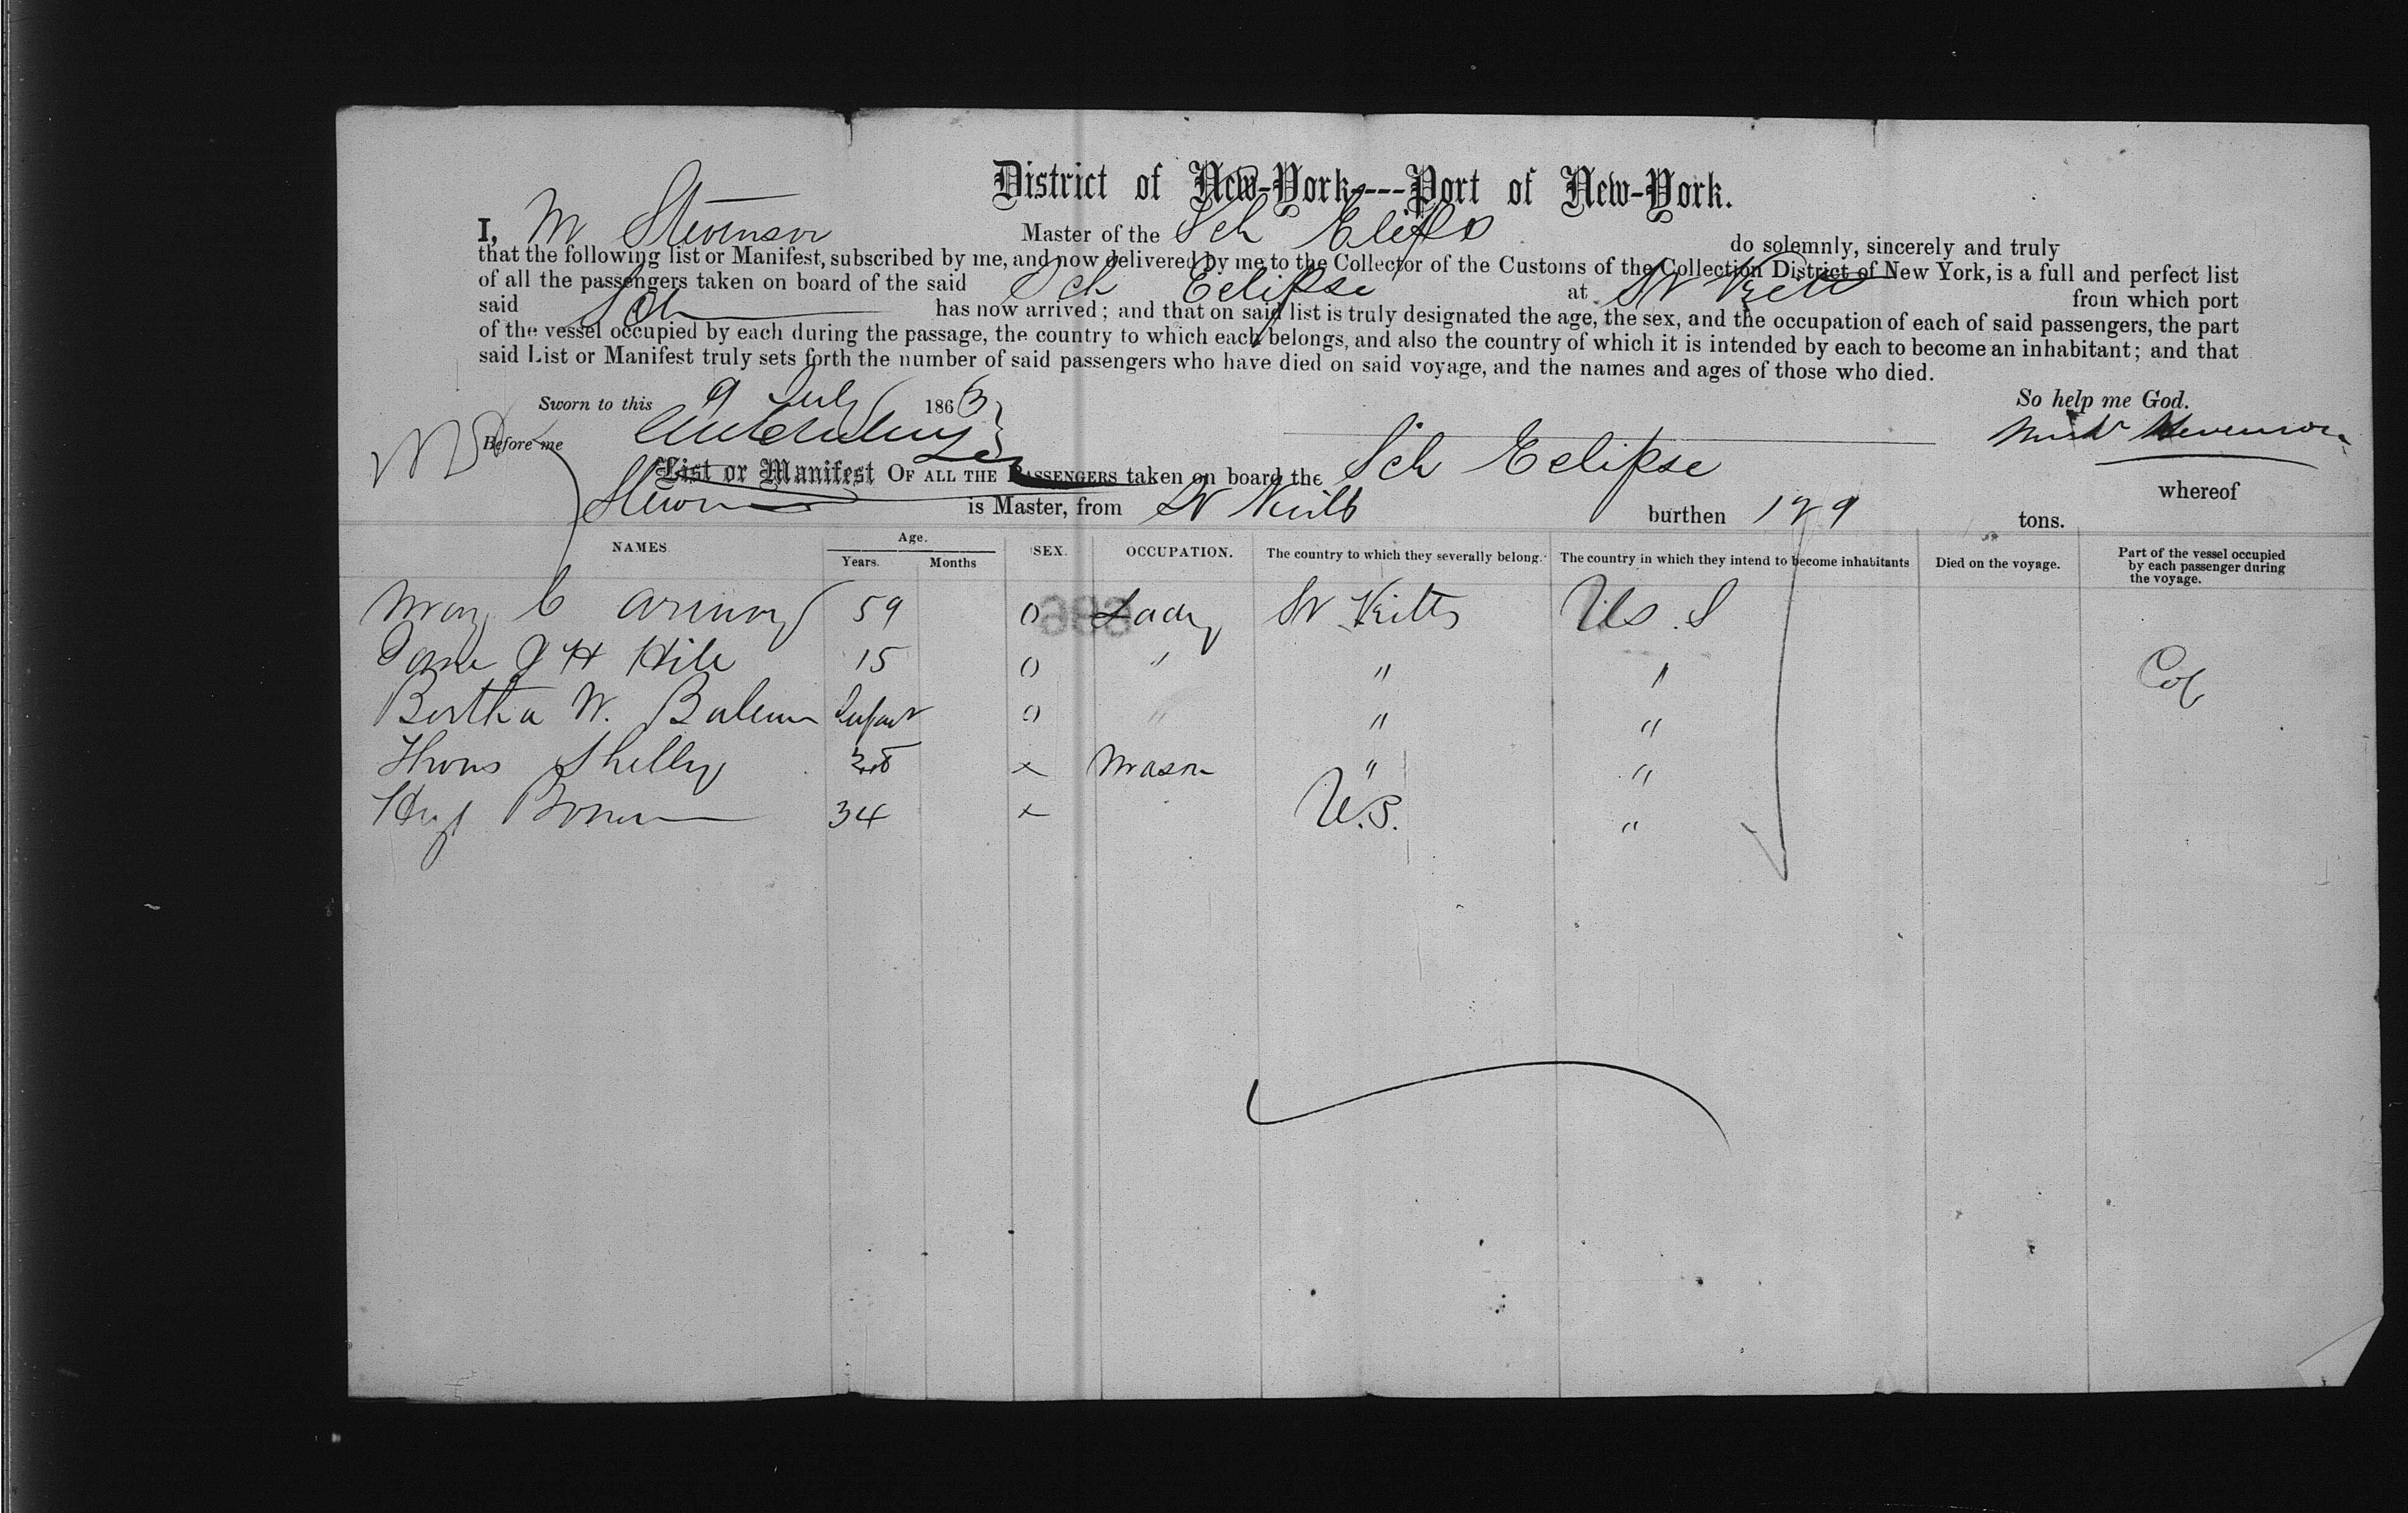 District of New-York----Port of New-York.
I, M Stevenson Master of the Sch Eclipse do solemnly, sincerely and truly
that the following list or Manifest, subscribed by me, and now delivered by me to the Collector of the Customs of the Collection District of New York, is a full and perfect list
of all the passengers taken on board of the said Sch Eclipse at St Kitts from which port
said Sch has now arrived; and that on said list is truly designated the age, the sex, and the occupation of each of said passengers, the part
of the vessel occupied by each during the passage, the country to which each belongs, and also the country of which it is intended by each to become an inhabitant; and that
said List or Manifest truly sets forth the number of said passengers who have died on said voyage, and the names and ages of those who died.
Sworn to this 9 July 1863 So help me God.
Before me Stevenson
List or Manifest OF ALL THE PASSENGERS taken on board the Sch Eclipse whereof
is Master, from St Kitts burthen 129 tons.
NAMES. Age. Years. Months SEX. OCCUPATION. The country to which they severally belong. The country in which they intend to become inhabitants Died on the voyage. Part of the vessel occupied by each passenger during the voyage.
Mary C 59 0 Lady St Kitts U S
Jane J H Hill 15 0 " " "
Bertha W. Infant 0 " " "
Thoms Shelly x Mason " "
34 x U.S. "